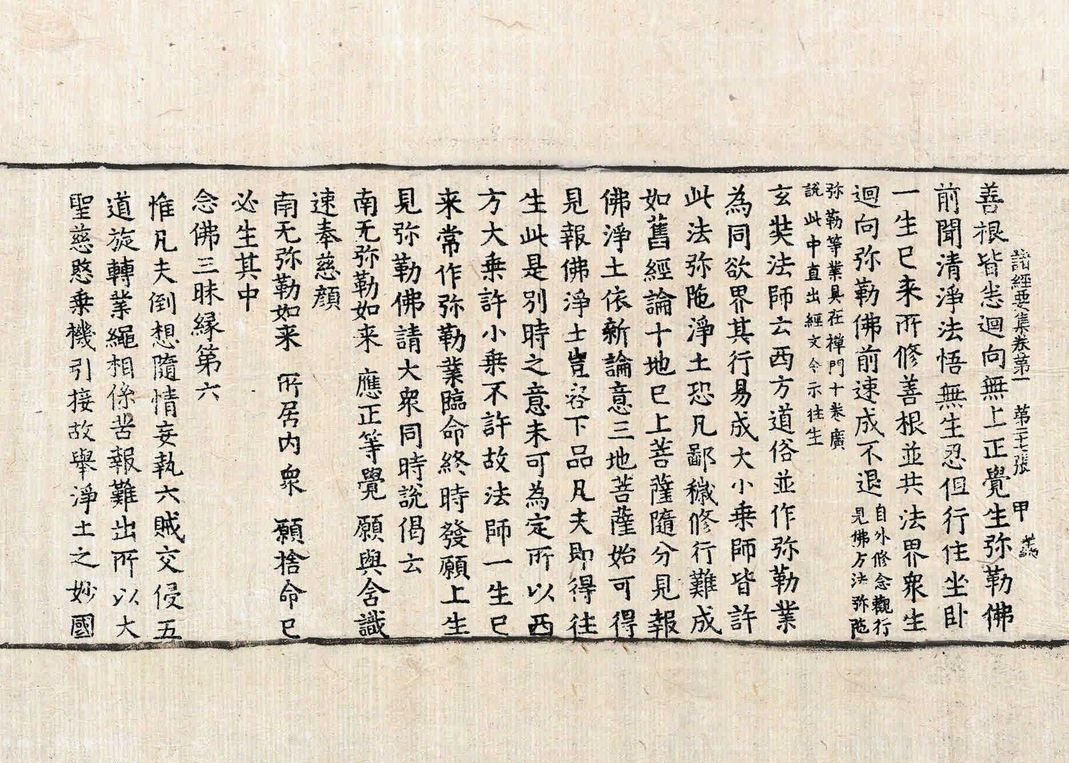 諸經要集卷第一 張 甲
善根皆悉迴向無上正覺生弥勒佛
前聞清淨法悟無生忍但行住坐卧
一生已来所修善根並共法界衆生
迴向弥勒佛前速成不退 自外修念觀行
見佛方法弥陁
弥勒等業具在禪門十卷廣
說此中直出經文令示往生
玄奘法師云西方道俗並作弥勒業
為同欲界其行易成大小乗師皆許
此法弥陁淨土恐凡鄙穢修行難成
如舊經論十地已上菩薩隨分見報
佛淨土依新論意三地菩薩始可得
見報佛淨土豈容下品凡夫即得往
生此是別時之意未可為定所以西
方大乗許小乗不許故法師一生已
来常作弥勒業臨命終時發願上生
見弥勒佛請大衆同時說偈云
南无弥勒如来 應正等覺 願與含識
速奉慈顏
南无弥勒如来 所居内衆 願捨命已
必生其中
念佛三昧緣第六
惟凡夫倒想隨情妄執六賊交侵五
道旋轉業繩相係苦報難出所以大
聖慈愍乗機引接故舉淨土之妙國